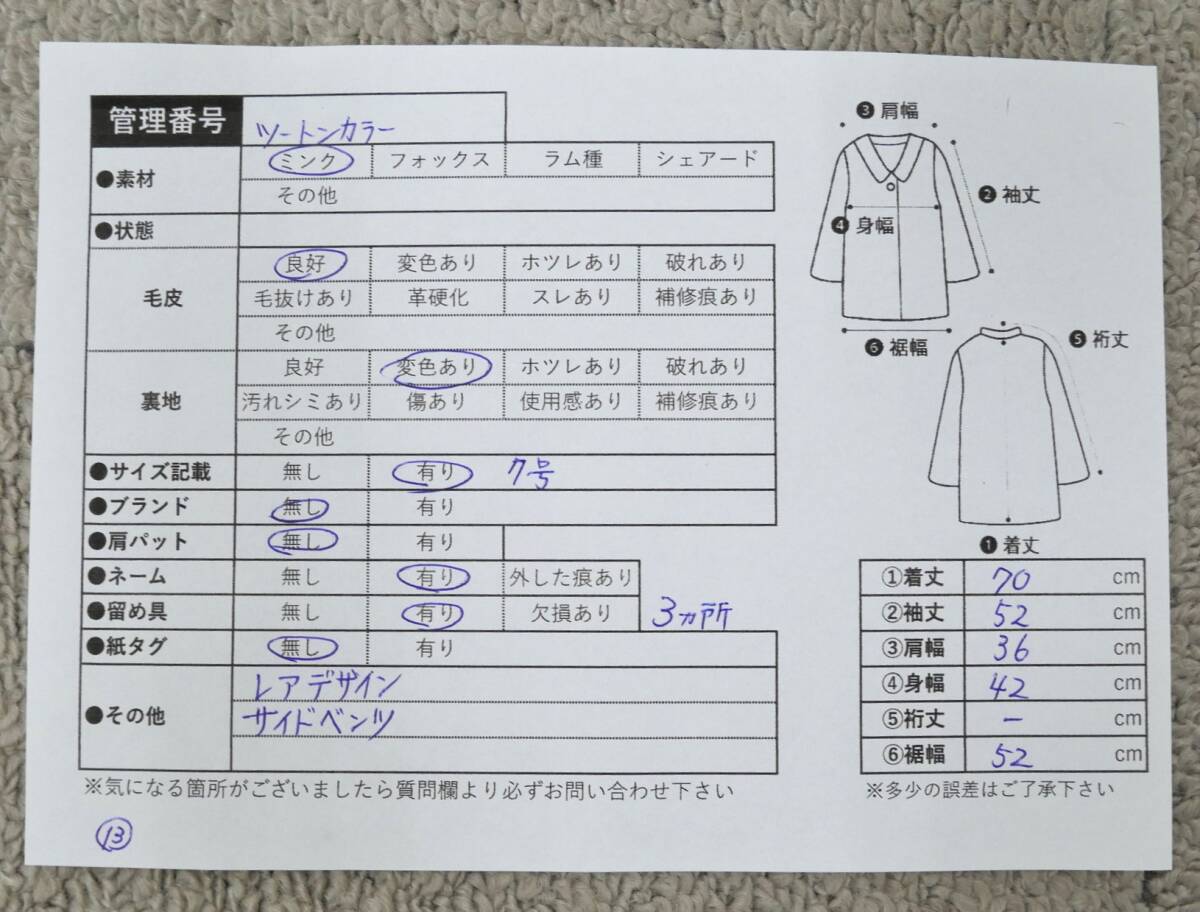 管理番号 ツートンカラー
●素材 ミンク フォックス ラム種 シェアード
その他
●状態
毛皮 良好 変色あり ホツレあり 破れあり
毛抜けあり 革硬化 スレあり 補修痕あり
その他
裏地 良好 変色あり ホツレあり 破れあり
汚れシミあり 傷あり 使用感あり 補修痕あり
その他
●サイズ記載 無し 有り 7号
●ブランド 無し 有り
●肩パット 無し 有り
●ネーム 無し 有り 外した痕あり
●留め具 無し 有り 欠損あり 3ヵ所
●紙タグ 無し 有り
●その他 レアデザイン
サイドベンツ
※気になる箇所がございましたら質問欄より必ずお問い合わせ下さい
⑬
❸肩幅
❷袖丈
❹身幅
❻裾幅
❺裄丈
❶着丈
①着丈 70 cm
②袖丈 52 cm
③肩幅 36 cm
④身幅 42 cm
⑤裄丈 － cm
⑥裾幅 52 cm
※多少の誤差はご了承下さい